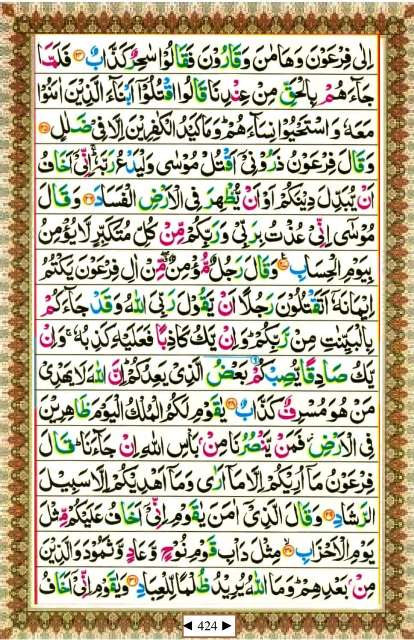 اِلٰی فِرْعَوْنَ وَهَامٰنَ وَقَارُوْنَ فَقَالُوْا سٰحِرٌ كَذَّابٌ ﴿۲۴﴾ فَلَمَّا
جَآءَهُمْ بِالْحَقِّ مِنْ عِنْدِنَا قَالُوا اقْتُلُوْۤا اَبْنَآءَ الَّذِیْنَ اٰمَنُوْا
مَعَهٗ وَاسْتَحْیُوْا نِسَآءَهُمْ ؕ وَمَا كَیْدُ الْكٰفِرِیْنَ اِلَّا فِیْ ضَلٰلٍ ﴿۲۵﴾
وَقَالَ فِرْعَوْنُ ذَرُوْنِیْۤ اَقْتُلْ مُوْسٰی وَلْیَدْعُ رَبَّهٗ ۚ اِنِّیْۤ اَخَافُ
اَنْ یُّبَدِّلَ دِیْنَكُمْ اَوْ اَنْ یُّظْهِرَ فِی الْاَرْضِ الْفَسَادَ ﴿۲۶﴾ وَقَالَ
مُوْسٰۤی اِنِّیْ عُذْتُ بِرَبِّیْ وَرَبِّكُمْ مِّنْ كُلِّ مُتَكَبِّرٍ لَّا یُؤْمِنُ
بِیَوْمِ الْحِسَابِ ﴿۲۷﴾ وَقَالَ رَجُلٌ مُّؤْمِنٌ ۖ مِّنْ اٰلِ فِرْعَوْنَ یَكْتُمُ
اِیْمَانَهٗۤ اَتَقْتُلُوْنَ رَجُلًا اَنْ یَّقُوْلَ رَبِّیَ اللّٰهُ وَقَدْ جَآءَكُمْ
بِالْبَیِّنٰتِ مِنْ رَّبِّكُمْ ؕ وَاِنْ یَّكُ كَاذِبًا فَعَلَیْهِ كَذِبُهٗ ۚ وَاِنْ
یَّكُ صَادِقًا یُّصِبْكُمْ بَعْضُ الَّذِیْ یَعِدُكُمْ ؕ اِنَّ اللّٰهَ لَا یَهْدِیْ
مَنْ هُوَ مُسْرِفٌ كَذَّابٌ ﴿۲۸﴾ یٰقَوْمِ لَكُمُ الْمُلْكُ الْیَوْمَ ظٰهِرِیْنَ
فِی الْاَرْضِ ۫ فَمَنْ یَّنْصُرُنَا مِنْۢ بَاْسِ اللّٰهِ اِنْ جَآءَنَا ؕ قَالَ
فِرْعَوْنُ مَاۤ اُرِیْكُمْ اِلَّا مَاۤ اَرٰی وَمَاۤ اَهْدِیْكُمْ اِلَّا سَبِیْلَ
الرَّشَادِ ﴿۲۹﴾ وَقَالَ الَّذِیْۤ اٰمَنَ یٰقَوْمِ اِنِّیْۤ اَخَافُ عَلَیْكُمْ مِّثْلَ
یَوْمِ الْاَحْزَابِ ﴿۳۰﴾ مِثْلَ دَاْبِ قَوْمِ نُوْحٍ وَّعَادٍ وَّثَمُوْدَ وَالَّذِیْنَ
مِنْۢ بَعْدِهِمْ ؕ وَمَا اللّٰهُ یُرِیْدُ ظُلْمًا لِّلْعِبَادِ ﴿۳۱﴾ وَیٰقَوْمِ اِنِّیْۤ اَخَافُ
◄ 424 ►